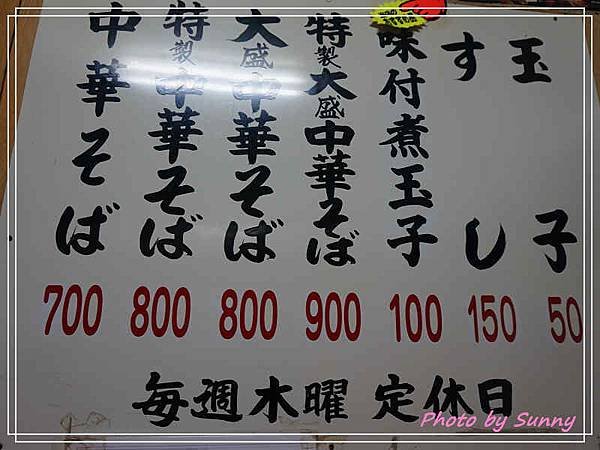 中華そば 700
特製中華そば 800
大盛中華そば 800
特製大盛中華そば 900
味付煮玉子 100
すし 150
玉子 50
毎週木曜 定休日
Photo by Sunny